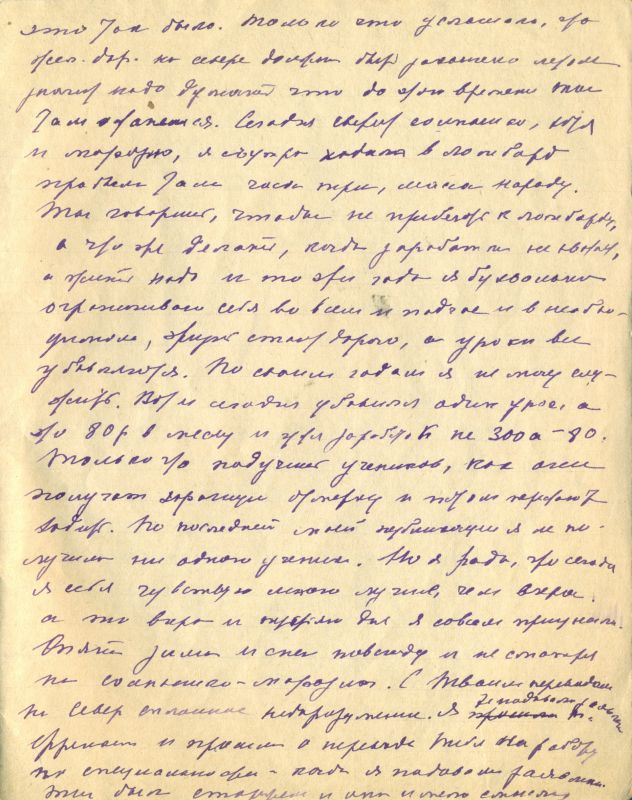 это так было. Только что услышала, что
жел. дор. на севере должна быть закончена летом
значит надо думать что до этого времени ты
там останешься. Сегодня сверх солнышко, хотя
и морозно, я с утра ходила в ломбард
пробыла там часа три, масса народу.
Ты говоришь, чтобы не прибегать к ломбарду,
а что же делать, когда заработка не хватает,
а жить надо и то эти года я буквально
ограничиваю себя во всем и подчас и в необхо-
димом, жизнь стала дорого, а уроки все
убавляются. По своим годам я не могу слу-
жить. Вот и сегодня убавился один урок, а
это 80 р в месяц и уже заработок не 300 а - 80.
Только что подучишь учеников, как они
получат хорошую отметку и потом перестают
ходить. По последней моей публикации я не по-
лучила ни одного ученика. Но я рада, что сегодня
я себя чувствую много лучше, чем вчера.
а то вчера и третьего дня я совсем приуныла.
Опять зима и снег повсюду и не смотря
на солнышко - морозит. С Твоим переводом
на север сплошное недоразумение. Я
и просила о переводе тебя на работу
по специальности - когда я подавала заявление